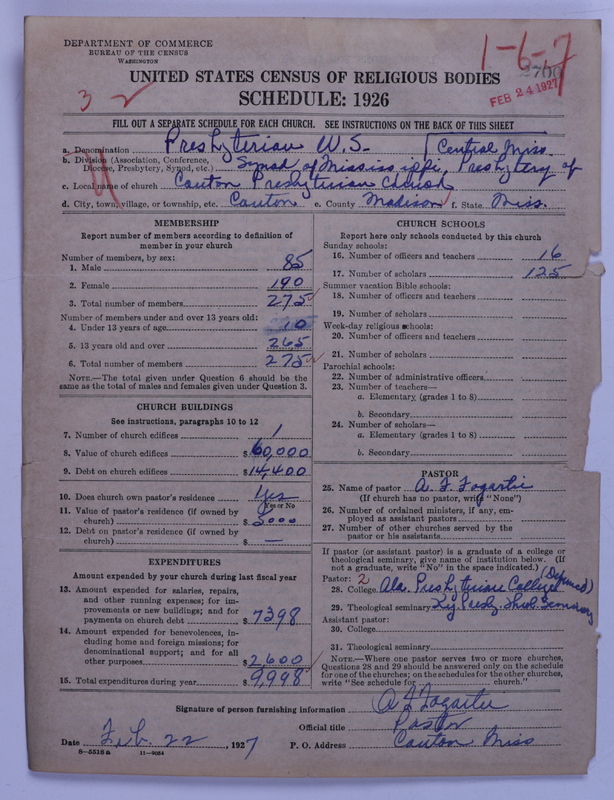 DEPARTMENT OF COMMERCE
BUREAU OF THE CENSUS
WASHINGTON
1-6-7
2700
FEB 24 1927
3
UNITED STATES CENSUS OF RELIGIOUS BODIES
SCHEDULE: 1926
FILL OUT A SEPARATE SCHEDULE FOR EACH CHURCH. SEE INSTRUCTIONS ON THE BACK OF THIS SHEET
a. Denomination Presbyterian U.S. Central Miss.
b. Division (Association, Conference, Diocese, Presbytery, Synod, etc.) Synod of Mississippi, Presbytery of
c. Local name of church Canton Presbyterian Church
d. City, town, village, or township, etc. Canton e. County Madison f. State Miss.
MEMBERSHIP
Report number of members according to definition of
member in your church
Number of members, by sex:
1. Male 85
2. Female 190
3. Total number of members 275
Number of members under and over 13 years old:
4. Under 13 years of age 10
5. 13 years old and over 265
6. Total number of members 275
NOTE.—The total given under Question 6 should be
same as the total of males and females given under Question 3.
CHURCH BUILDINGS
See instructions, paragraphs 10 to 12
7. Number of church edifices 1
8. Value of church edifices $60,000
9. Debt on church edifices $14,400
10. Does church own pastor's residence Yes
Yes or No
11. Value of pastor's residence (if owned by
church) $5000
12. Debt on pastor's residence (if owned by
church) $ —
EXPENDITURES
Amount expended by your church during last fiscal year
13. Amount expended for salaries, repairs,
and other running expenses; for im-
provements or new buildings; and for
payments on church debt $7398
14. Amount expended for benevolences, in-
cluding home and foreign missions; for
denominational support; and for all
other purposes $2,600
15. Total expenditures during year $9,998
CHURCH SCHOOLS
Report here only schools conducted by this church
Sunday schools:
16. Number of officers and teachers 16
17. Number of scholars 125
Summer vacation Bible schools:
18. Number of officers and teachers
19. Number of scholars
Week-day religious schools:
20. Number of officers and teachers
21. Number of scholars
Parochial schools:
22. Number of administrative officers
23. Number of teachers—
a. Elementary (grades 1 to 8)
b. Secondary
24. Number of scholars—
a. Elementary (grades 1 to 8)
b. Secondary
PASTOR
25. Name of pastor A. F. Fogartie
(If church has no pastor, write "None")
26. Number of ordained ministers, if any, em-
ployed as assistant pastors
27. Number of other churches served by the
pastor or his assistants
If pastor (or assistant pastor) is a graduate of a college or
theological seminary, give name of institution below. (If
not a graduate, write "No" in the space indicated.)
Pastor: 2
28. College Ala. Presbyterian College (Defunct)
29. Theological seminary Ky. Presby. Theol. Seminary
Assistant pastor:
30. College
31. Theological seminary
NOTE.—Where one pastor serves two or more churches,
Questions 28 and 29 should be answered only on the schedule
for one of the churches; on the schedules for the other churches,
write "See schedule for church."
Signature of person furnishing information A F Fogartie
Official title Pastor
Date Feb. 22, 1927 P. O. Address Canton Miss
8-5518a 11-9054